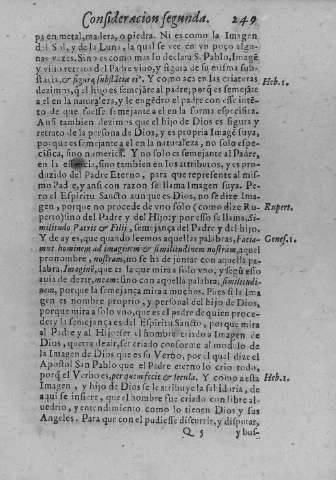 Consideracion segunda. 249
pa en metal, madera, o piedra. Ni es como la Imagen
del Sol, y de la Luna, la qual se vee en vn poço algu-
nas vezes. Sino es como mas lo declara S. Pablo, Imagẽ
y viuo retrato del Padre viuo, y figura de su misma sub-
stãcia, & figura substãtiæ ei⁹. Y como aca en las criaturas Heb. 1.
dezimos, q̃ el hijo es semejãte al padre; porq̃ es semejãte
a el en la naturaleza, y le engẽdro el padre con esse intẽ-
to de que fuesse semejante a el en la forma especifica.
Ansi tambien dezimos que el hijo de Dios es figura y
retrato de la persona de Dios, y es propria Imagẽ suya,
por que es semejante a el en la naturaleza, no solo espe-
cifica, sino numerica. Y no solo es semejante al Padre,
en la essencia, sino tambien en los atributos, y es pro-
duzido del Padre Eterno, para que represente al mis-
mo Padre, y ansi con razon se llama Imagen suya. Pe-
ro el Espiritu Sancto aunque es Dios, no se dize Ima-
gen, porque no procede de vno solo (como dize Ru- Rupert.
perto) sino del Padre y del Hijo: y por esso se llama, Si-
militudo Patris & Filij, semejança del Padre y del hijo.
Y de ay es, que quando leemos aquellas palabras, Facia- Genes. 1.
mus hominem ad imaginem & similitudinem nostram, aquel
pronombre, nostram, no se ha de juntar con aquella pa-
labra, Imaginẽ, que es la que mira a solo vno, y segũ esso
auia de dezir, meam: sino con aquella palabra, similitudi-
nem, porque la semejança mira a muchos. Pues si la Ima
gen es nombre proprio, y personal del hijo de Dios,
porque mira a solo vno, que es el padre de quien proce-
de: y la semejança es del Espiritu Sancto, porque mira
al Padre y al Hijo: ser el hombre criado a Imagen de
Dios, querra dezir, ser criado conforme al modelo de
la Imagen de Dios que es su Verbo, por el qual dize el
Apostol San Pablo que el Padre eterno lo crio todo,
porq̃ el Verbo es, per quem fecit & sæcula. Y como a esta Heb. 1.
Imagen, y hijo de Dios se le atribuye la sabiduria, de
aqui se infiere, que el hombre fue criado con libre al-
uedrio, y entendimiento como lo tienen Dios y sus
Angeles. Para que con el pudiesse discurrir, y disputar,
Q 5 y bus-